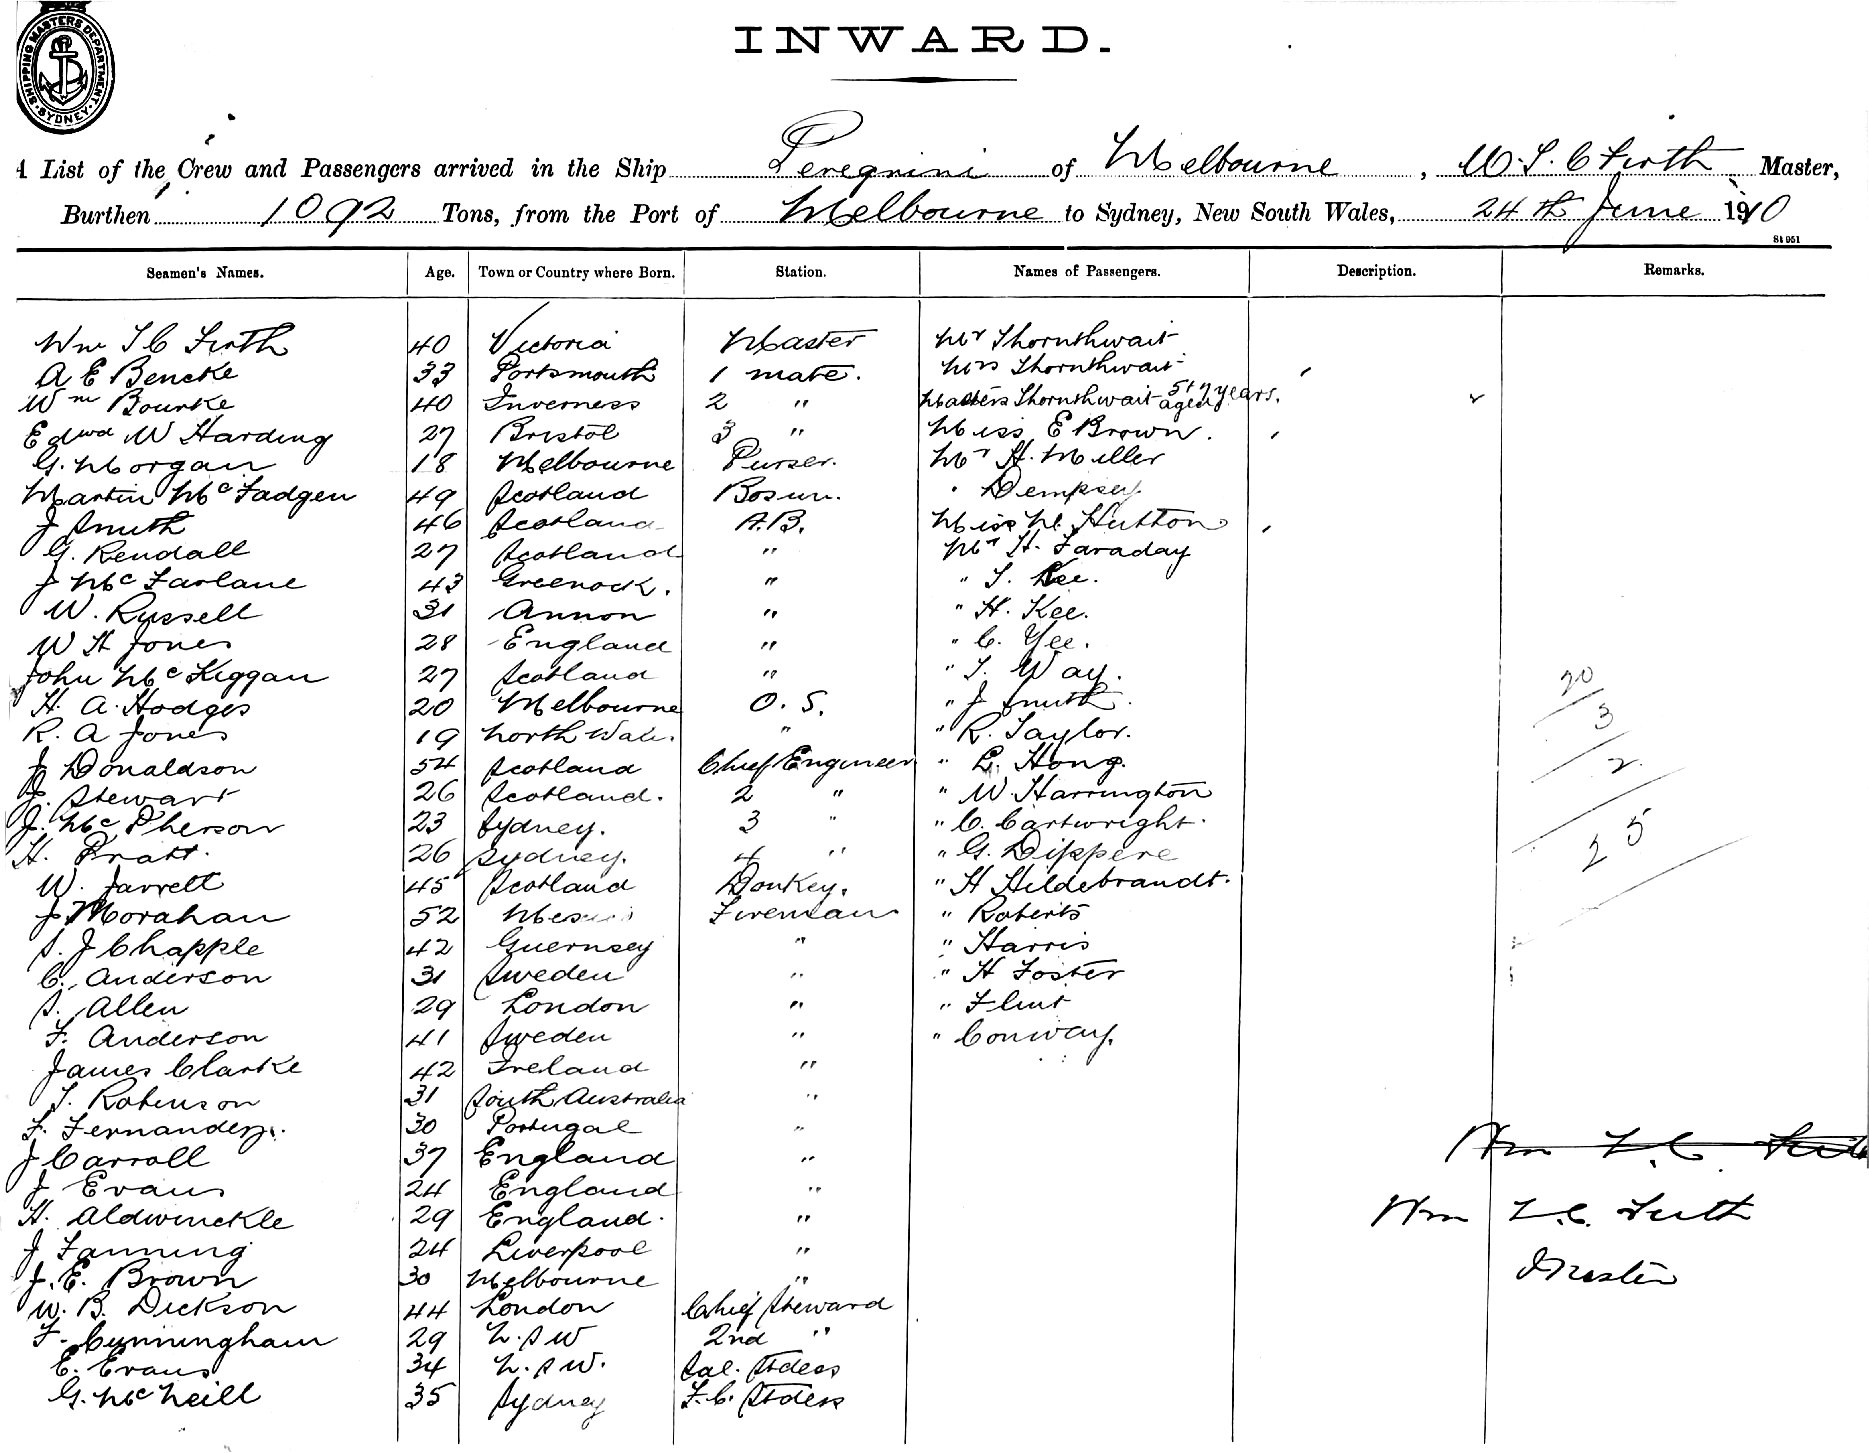 SHIPPING MASTERS DEPARTMENT · SYDNEY ·
INWARD.
A List of the Crew and Passengers arrived in the Ship Peregrini of Melbourne, W. T. C Firth Master,
Burthen 1092 Tons, from the Port of Melbourne to Sydney, New South Wales, 24th June 1910
81951
Seamen's Names. Age. Town or Country where Born. Station. Names of Passengers. Description. Remarks.
Wm T C Firth 40 Victoria Master Mr Thornthwait
A E Bencke 33 Portsmouth 1 mate. Mrs Thornthwait
Wm Bourke 40 Inverness 2 " Masters Thornthwait aged 5 & 7 years.
Edwd W Harding 27 Bristol 3 " Miss E Brown.
G. Morgan 18 Melbourne Purser. Mr H. Miller
Martin McFadgen 49 Scotland Bosun. " Dempsey.
J Smith 46 Scotland A.B. Miss M Hutton
G. Kendall 27 Scotland " Mr H. Faraday
J McFarlane 43 Greenock. " " T. Kee.
W. Russell 31 Annon " " H. Kee.
W H Jones 28 England " " C. Yee.
John McKiggan 27 Scotland " " T. Way.
H. A. Hodges 20 Melbourne O. S. " J Smith. 20
R. A Jones 19 North Wales. " " R. Taylor. 3
J Donaldson 54 Scotland Chief Engineer " L. Hong. 2
J. Stewart 26 Scotland. 2 " " W. Harrington
J. McPherson 23 Sydney. 3 " " C. Cartwright. 25
H. Pratt. 26 Sydney. 4 " " G. Dippere
W. Jarrett 45 Scotland Donkey. " H Hildebrandt.
J Morahan 52 Fireman " Roberts
S. J Chapple 42 Guernsey " " Harris
C. Anderson 31 Sweden " " H Foster
S. Allen 29 London " " Flint
F. Anderson 41 Sweden " " Conway.
James Clarke 42 Ireland "
T. Robinson 31 South Australia "
F. Fernandez. 30 Portugal "
J Carroll 37 England " Wm T. C. Firth
J Evans 24 England "
H. Aldwinckle 29 England. " Wm T. C. Firth
J Fanning 24 Liverpool "
J. E. Brown 30 Melbourne " Master
W. B. Dickson 44 London Chief Steward
F. Cunningham 29 N. S W 2nd "
E. Evans 34 N. S W. Sal. Stdess
G. McNeill 35 Sydney F. C. Stdess